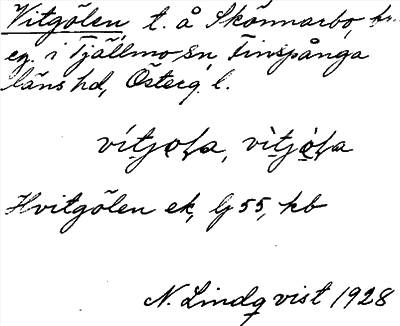 Vitgölen, t. å Skönnarbo, kr.
eg. i Tjällmo sn, Finspånga
läns hd, Österg. l.
vítjo̱ɬa, vìtjó̱ɬa
Hvitgölen ek, lj 55, kb
N. Lindqvist 1928